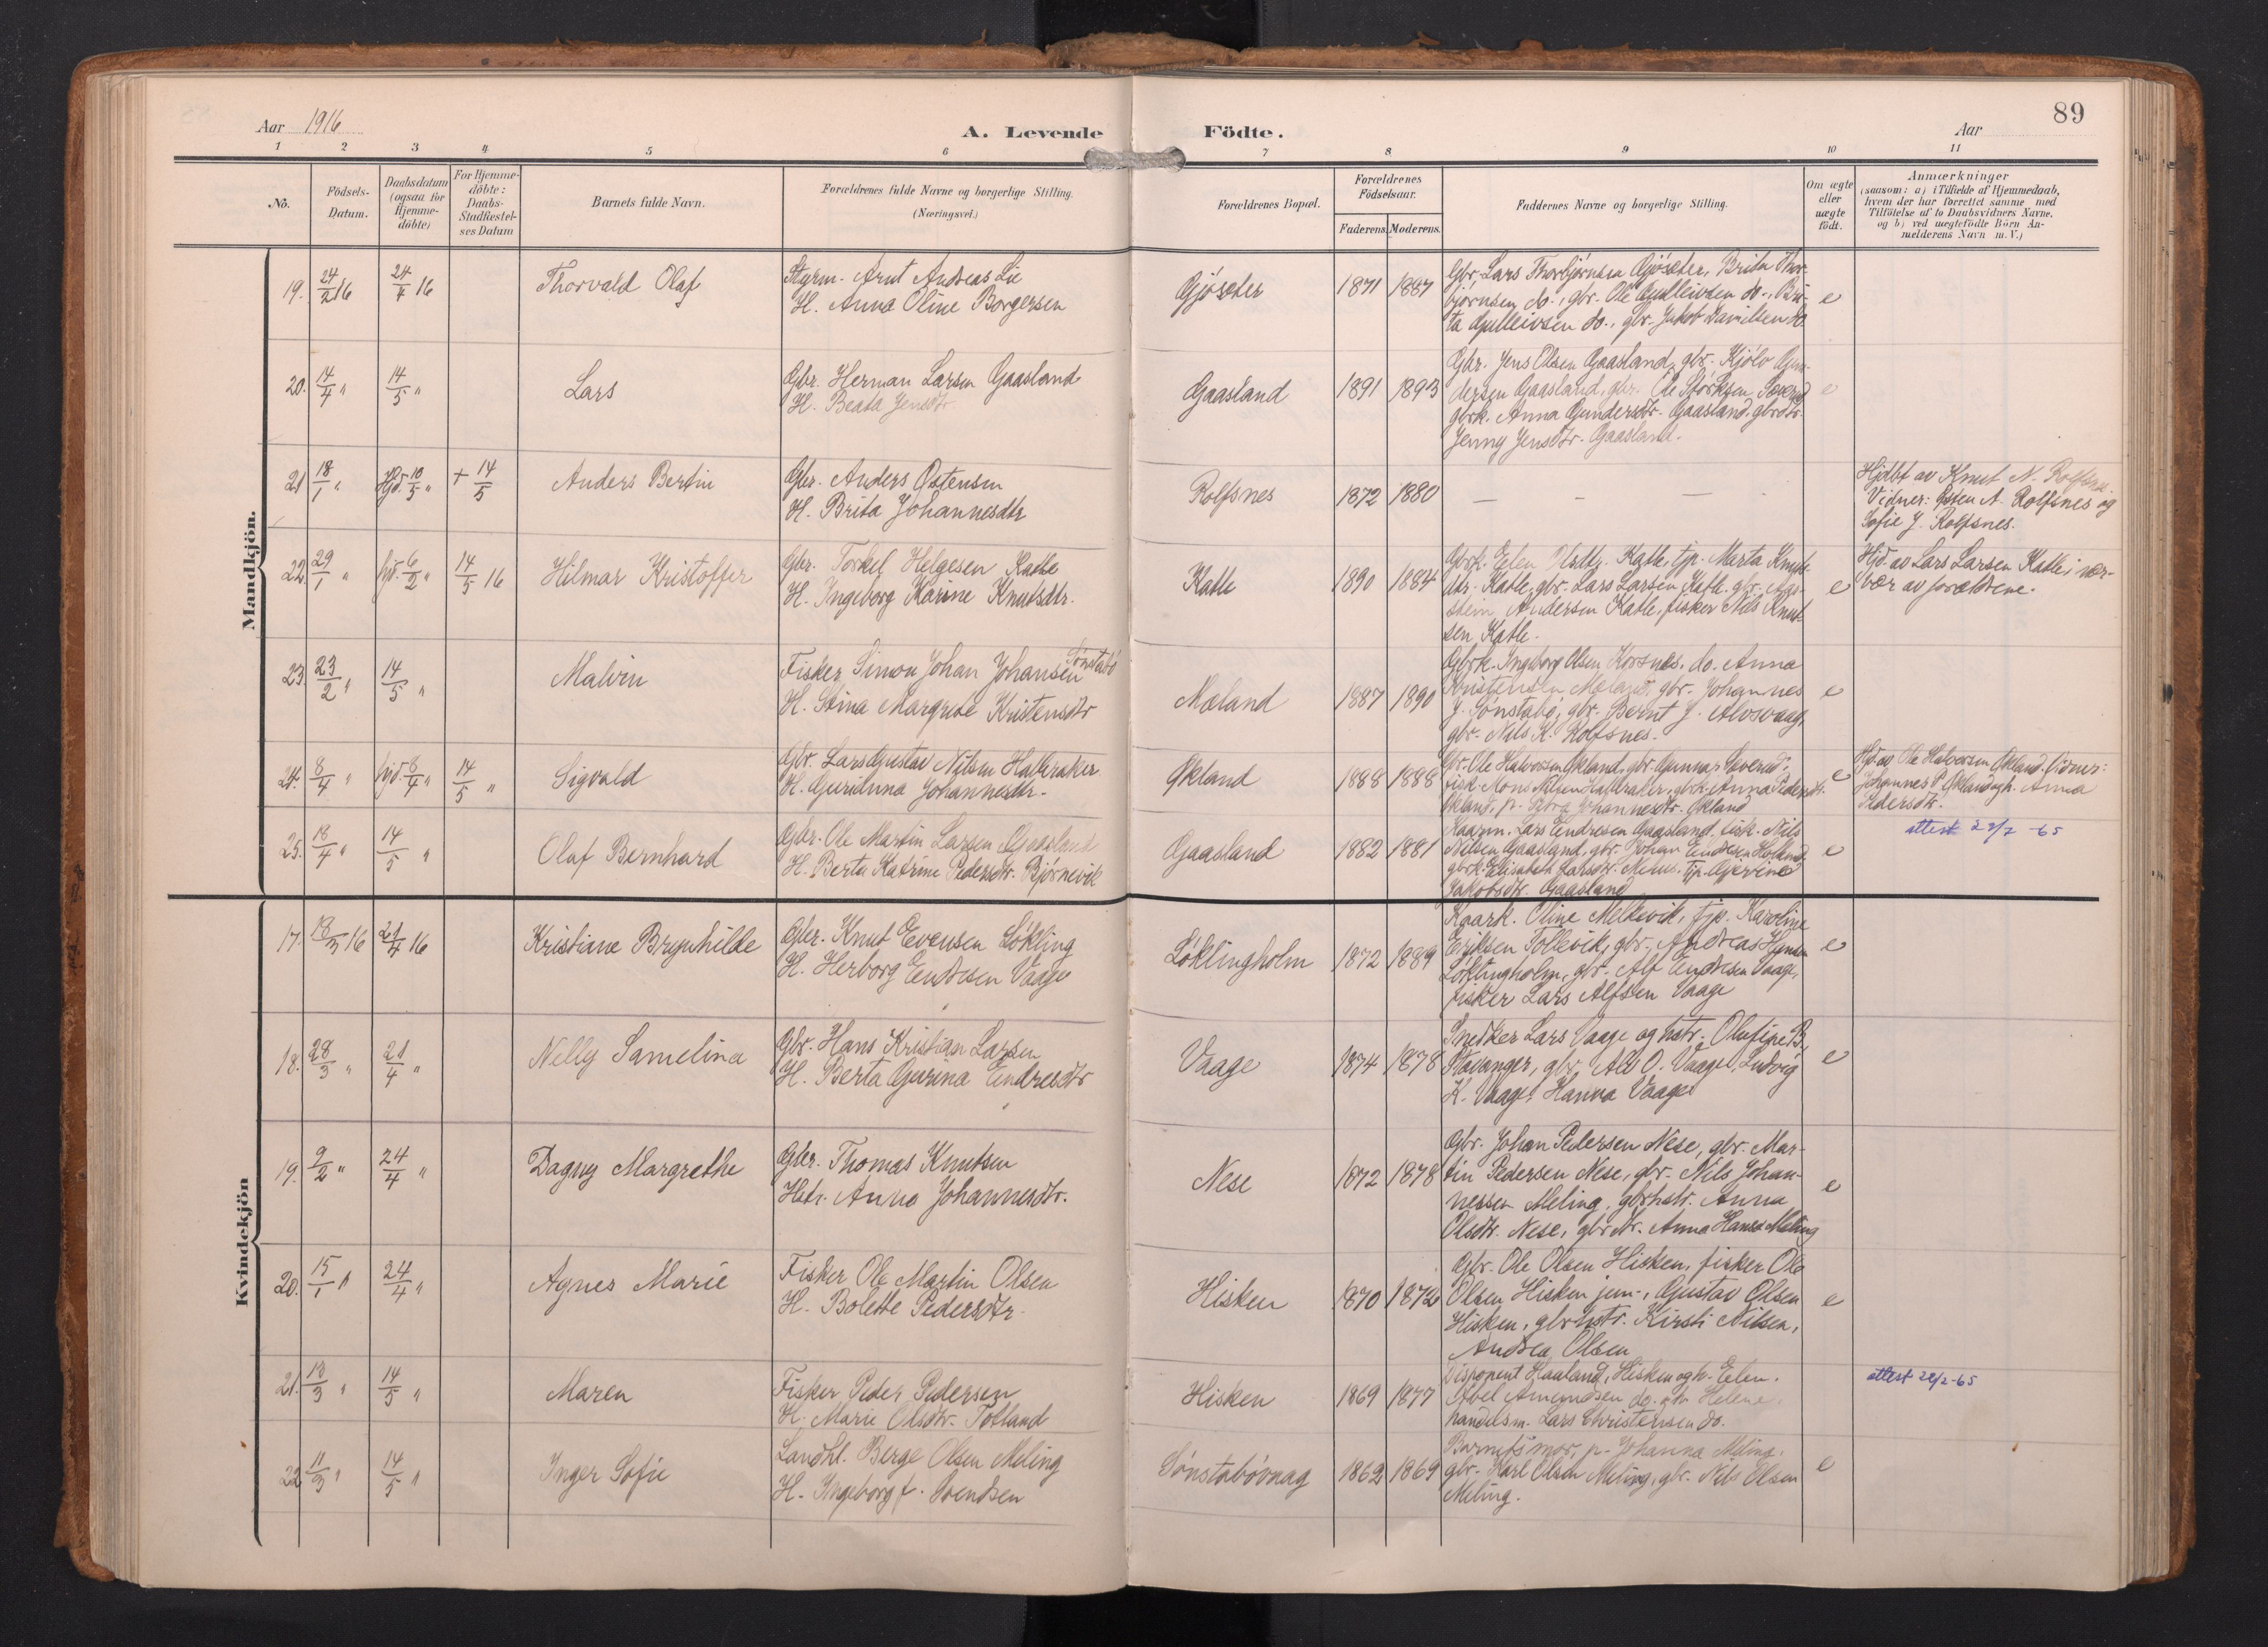 89
Aar 1916
A. Levende Födte.
Aar
1 2 3 4 5 6 7 8 9 10 11
No.
Födsels-
Datum.
Daabsdatum
(ogsaa for
Hjemme-
döbte)
For Hjemme-
döbte:
Daabs-
Stadfæstel-
ses Datum
Barnets fulde Navn.
Forældrenes fulde Navne og borgerlige Stilling.
(Næringsvei.)
Forældrenes Bopæl.
Forældrenes
Födselsaar.
Faderens. Moderens.
Faddernes Navne og borgerlige Stilling.
Om ægte
eller
uægte
födt.
Anmærkninger
(saasom: a) i Tilfælde af Hjemmedaab,
hvem der har forrettet samme med
Tilföielse af to Daabsvidners Navne,
og b) ved uægtefödte Börn An-
melderens Navn m. V.)
Mandkjön.
19. 24/2 16 24/4 16 Thorvald Olaf
Styrm. Arnt Andreas Lie
H. Anna Oline Borgersen
Gjøsæter 1871 1887
Gbr. Lars Thorbjørnsen Gjøsæter, Brita Thor-
bjørnsen do., gbr. Ole Gulleivsen do., Bri-
ta Gulleivsen do., gbr. Jakob Danielsen do.
e
20. 14/4 " 14/5 " Lars
Gbr. Herman Larsen Gaasland
H. Beata Jensdtr
Gaasland 1891 1893
Gbr. Jens Olsen Gaasland, gbr. Kjølv Gun-
dersen Gaasland, gbr. Ole Størksen
gbrk. Anna Gundersdtr. Gaasland, gbrdtr.
Jenny Jensdtr. Gaasland.
e
21 18/1 " Hjd. 10/5 " + 14/5 Anders Bertin
Gbr. Anders Østensen
H. Brita Johannesdtr
Rolfsnes 1872 1880
— - — -
Hjdbt av Knut N. Rolfsnes.
Vidner: Østen A. Rolfsnes og
Sofie J. Rolfsnes.
22. 29/1 " hjd. 6/2 " 14/5 16 Hilmar Kristoffer
Gbr. Torkel Helgesen Katle
H. Ingeborg Karine Knutsdtr.
Katle 1890 1884
Gbrk. Elen Olsdtr. Katle, tjp. Marta Knuts-
dtr. Katle, gbr. Lars Larsen Katle, gbr. Aas-
stein Andersen Katle, fisker Nils Knut-
sen Katle.
e
Hjd. av Lars Larsen Katle i nær-
vær av forældrene.
23. 23/2 " 14/5 " Malvin
Fisker Simon Johan Johansen Sønstabø
H. Stina Margrete Kristensdtr
Mæland 1887 1890
Gbrk. Ingeborg Olsen Korsnes, do. Anna
Kristensen Mæland, gbr. Johannes
J. Sønstabø, gbr. Bernt J. Alvsvaag,
gbr. Nils K. Rolfsnes.
e
24. 8/4 " hjd. 8/4 " 14/5 " Sigvald
Gbr. Lars Gustav Nilsen Halleraker
H. Guridina Johannesdtr.
Økland 1888 1888
Gbr. Ole Halvorsen Økland, gbr. Gunnar
fisk. Mons Nilsen Halleraker, gbrk. Anna Pedersdtr.
Økland, p. Johannesdtr. Økland
e
Hjd. av Ole Halvorsen Økland. Vidner:
Johannes P. Økland og h. Anna
Pedersdtr.
25. 18/4 " 14/5 " Olaf Bernhard
Gbr. Ole Martin Larsen Gaasland
H. Berta Katrine Pedersdtr. Bjørnevik
Gaasland 1882 1881
Kaarm. Lars Endresen Gaasland, fisk. Nils
Nilsen Gaasland, gbr. Johan Endresen
gbrk. Elisabeth Larsdtr. tjp.
Jakobsdtr. Gaasland
e
attest 22/2 -65
Kvindekjön
17. 18/3 16 21/4 16 Kristiane Brynhilde
Gbr. Knut Evensen Løkling
H. Herborg Endresen Vaage
Løklingholm 1872 1889
Kaark. Oline Melkevik, tjp. Karoline
Eriksen Tollevik, gbr. Andreas
Løklingholm, gbr. Alf Endresen Vaage,
fisker Lars Alfsen Vaage
e
18. 28/3 " 21/4 " Nelly Samelina
Gbr. Hans Kristian Larsen
H. Berta Gurina Endresdtr
Vaage 1874 1878
Snedker Lars Vaage og hstr. Olufine B.
Stavanger, gbr. Alv O. Vaage, Ludvig
K. Vaage, Hanna Vaage
e
19. 9/2 " 24/4 " Dagny Margrethe
Gbr. Thomas Knutsen
Hstr. Anna Johannesdtr.
Nese 1872 1878
Gbr. Johan Pedersen Nese, gbr. Mar-
tin Pedersen Nese, gbr. Nils Johan-
nessen Meling, gbrhstr. Anna
Olsdtr. Nese, gbrdtr. Anna Hansd. Meling
e
20. 15/1 " 24/4 " Agnes Marie
Fisker Ole Martin Olsen
H. Bolette Pedersdtr.
Hisken 1870 1872
Gbr. Ole Olsen Hisken, fisker Ole
Olsen Hisken jun., Gustav Olsen
Hisken, gbrhstr. Kirsti Nilsen,
Andrea Olsen
e
21. 18/3 " 14/5 " Maren
Fisker Peder Pedersen
H. Marie Olsdtr. Totland
Hisken 1869 1877
Disponent Haaland, Hisken og h. Elen.
Abel Amundsen do. og h. Helene,
handelsm. Lars Christensen do.
attest 22/2-65
22 11/3 " 14/5 " Inger Sofie
Landhl. Berge Olsen Meling
H. Ingeborg f. Svendsen
Sønstabøvaag 1862 1869
Barnets mor, p. Johanna Meling,
gbr. Karl Olsen Meling, gbr. Nils Olsen
Meling.
e